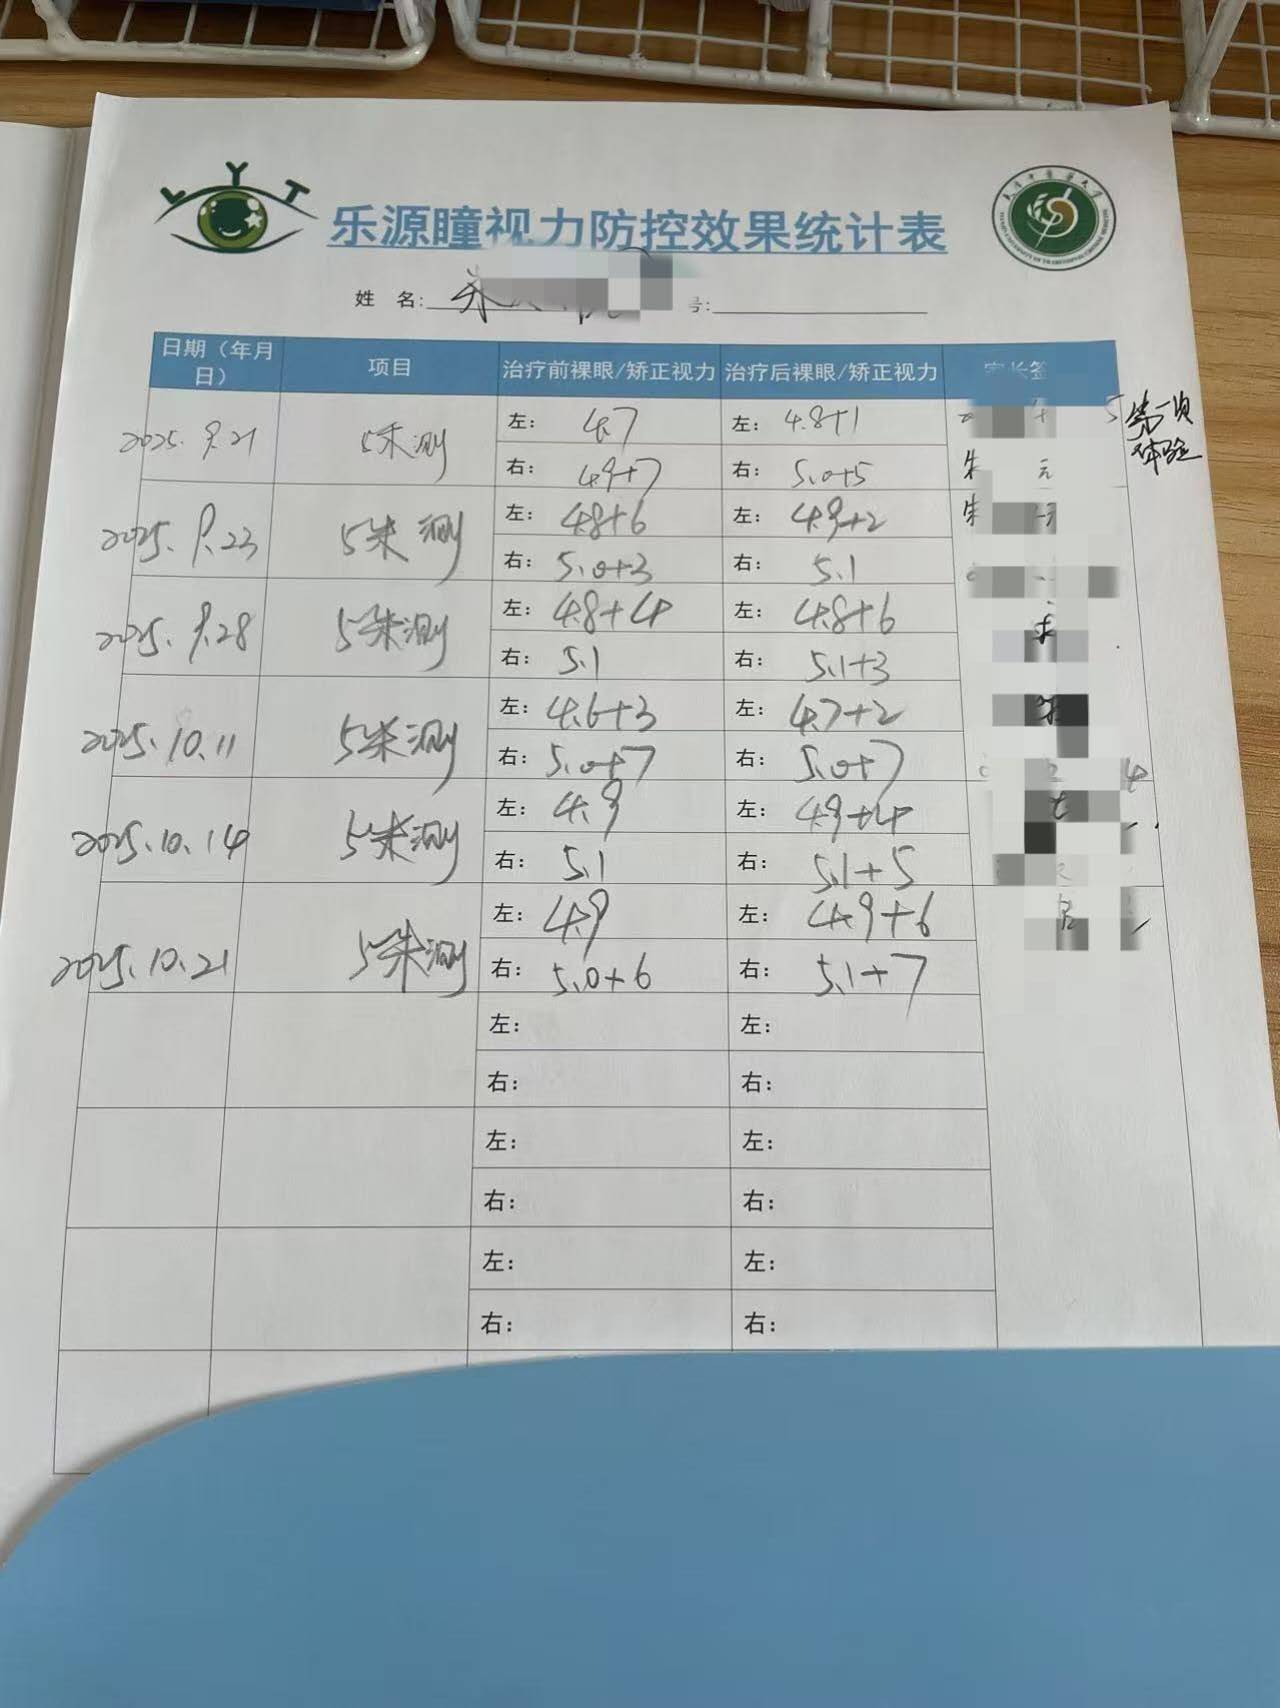 LYT
乐源瞳视力防控效果统计表
姓 名: 朱 号:
日期（年月日） 项目 治疗前裸眼/矫正视力 治疗后裸眼/矫正视力 家长签
2025.9.21 5米测 左: 4.7 左: 4.8+1
右: 4.9+7 右: 5.0+5 朱 元
第一次
体验
2025.9.23 5米测 左: 4.8+6 左: 4.9+2 朱
右: 5.0+3 右: 5.1
2025.9.28 5米测 左: 4.8+4 左: 4.8+6
右: 5.1 右: 5.1+3
2025.10.11 5米测 左: 4.6+3 左: 4.7+2
右: 5.0+7 右: 5.0+7
2025.10.14 5米测 左: 4.9 左: 4.9+4
右: 5.1 右: 5.1+5
2025.10.21 5米测 左: 4.9 左: 4.9+6
右: 5.0+6 右: 5.1+7
左: 左:
右: 右:
左: 左:
右: 右:
左: 左:
右: 右: